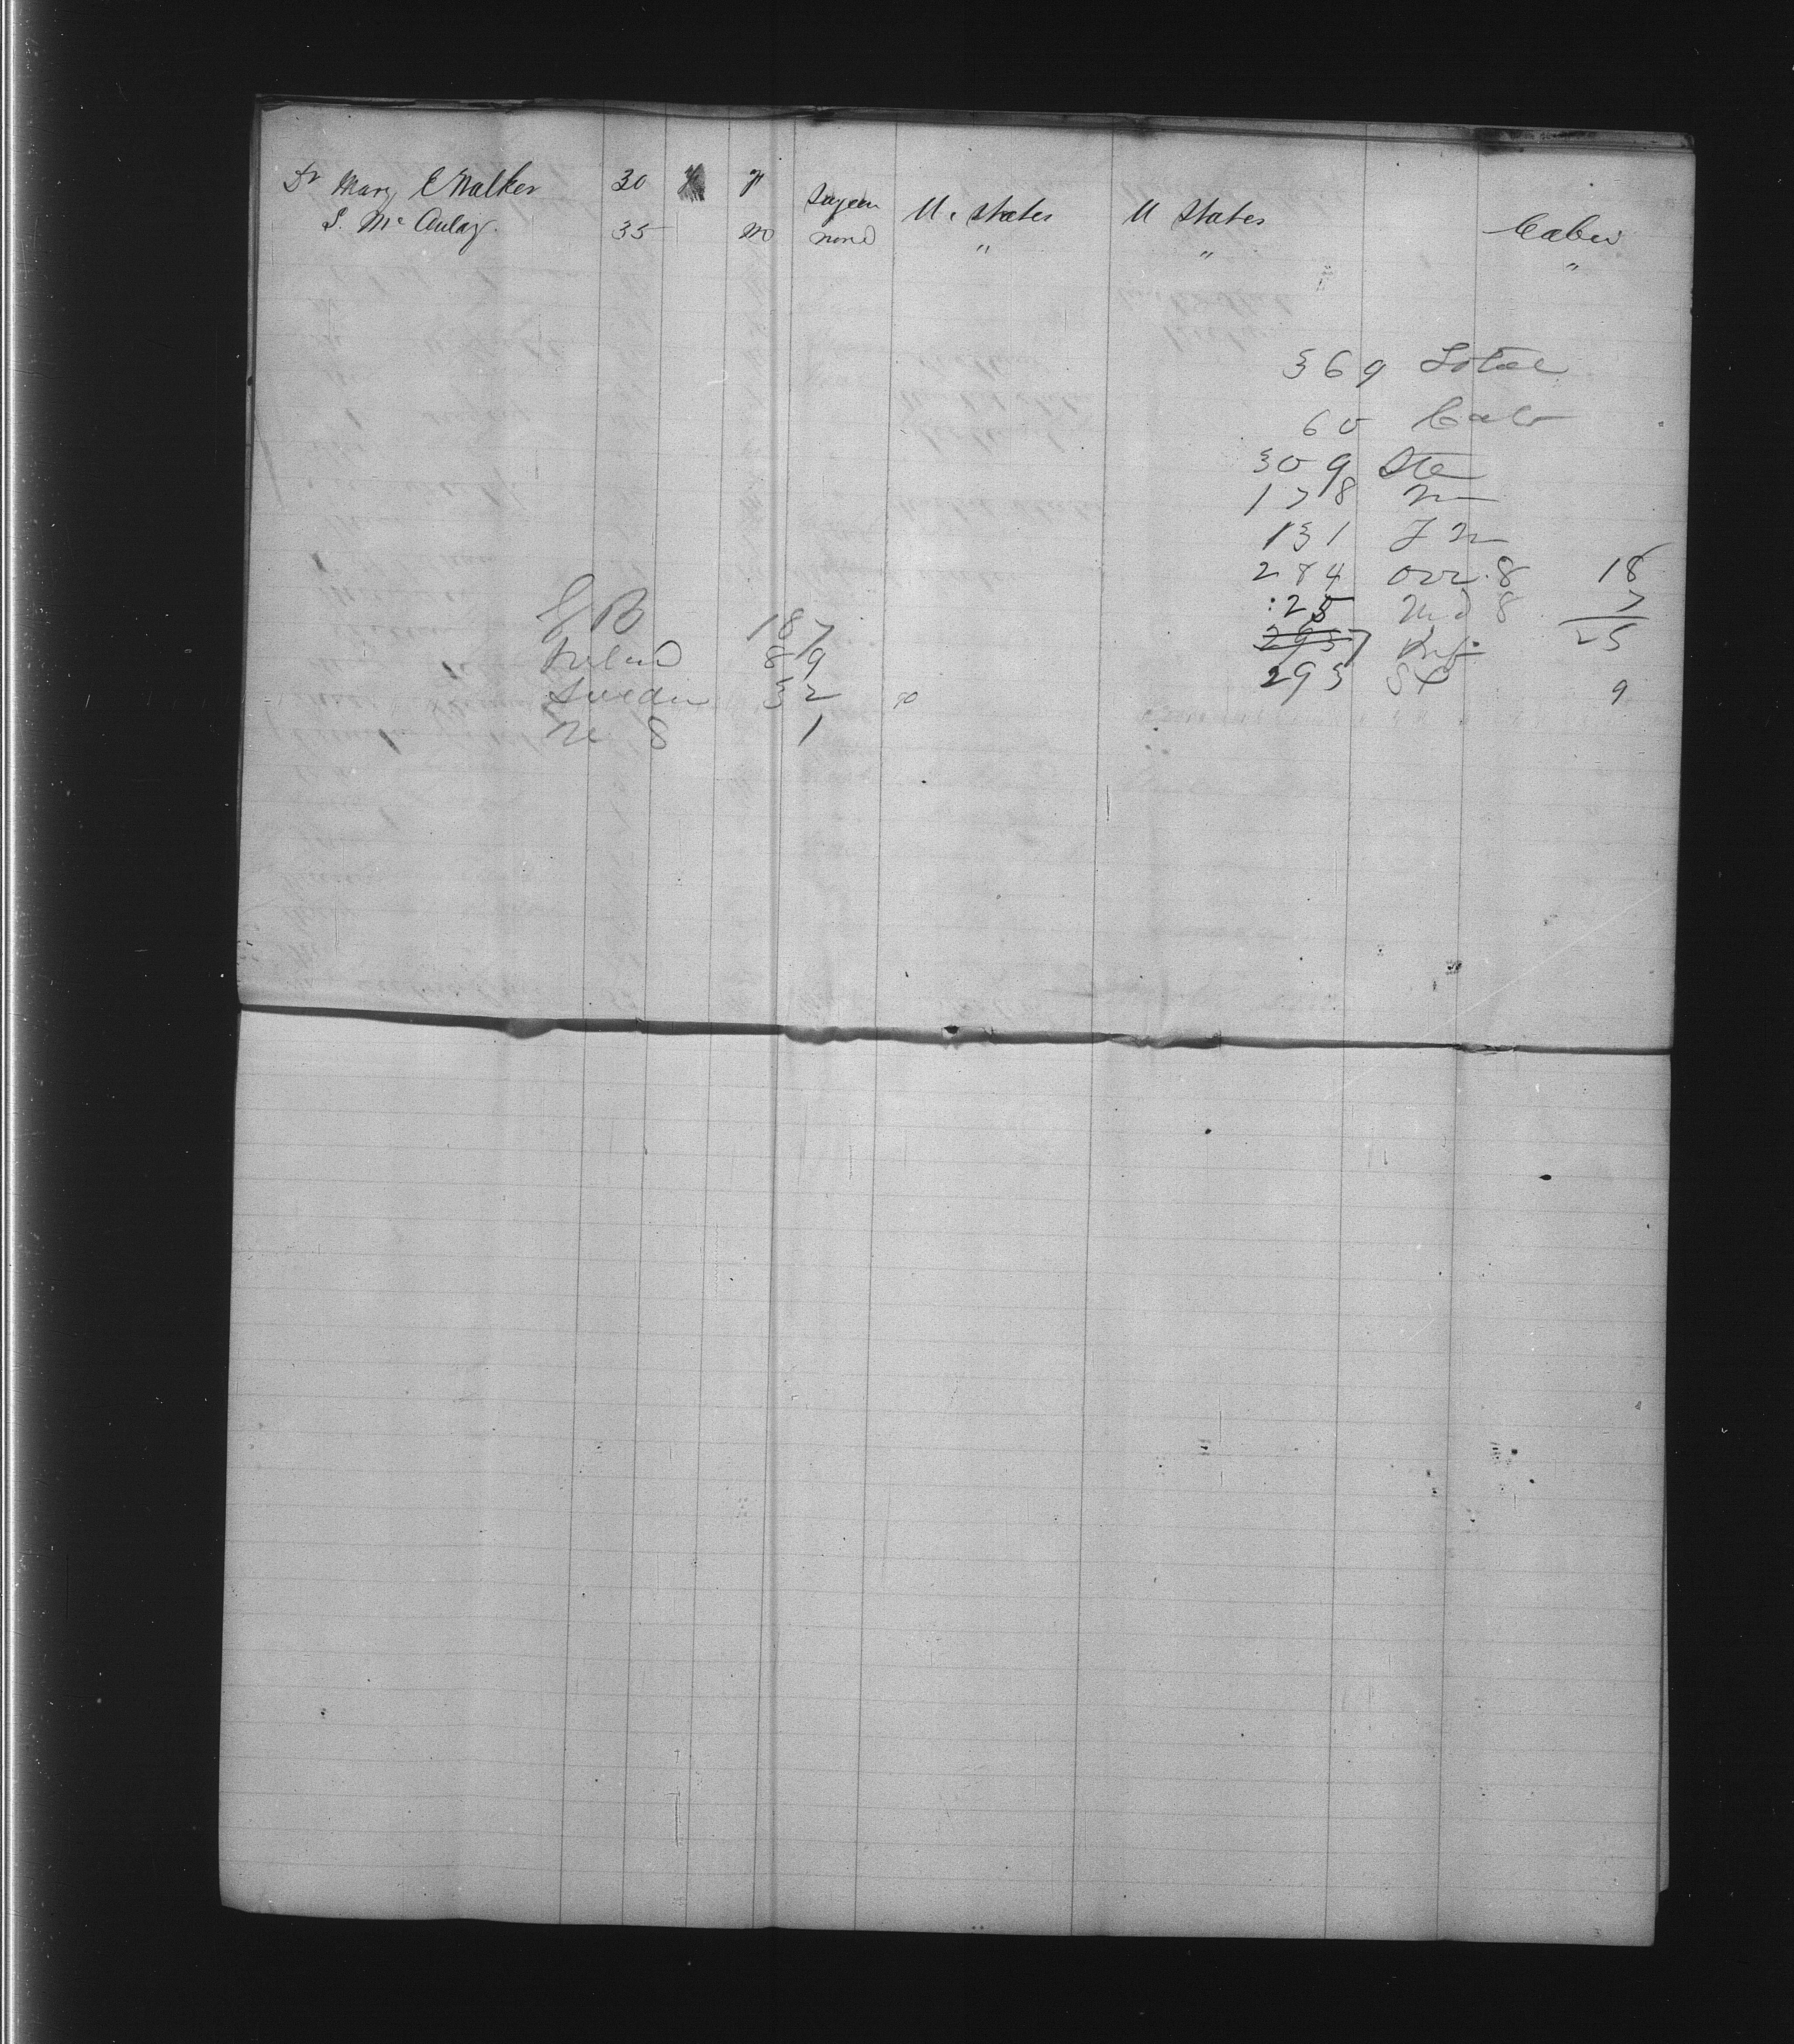 Dr Mary E Walker 30 F Surgeon U. States U States Cabin
S. McAulay. 35 M none " " "
369 Total
60 Cab
309 Ste
178 M
131 F M
284 ovr. 8 18
25 Und 8 7
25
293 St 9
G B 187
Ireland 89
Sweden 32
N S 1